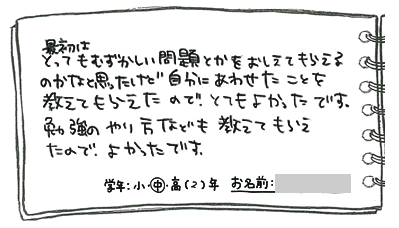 最初は
とってもむずかしい問題とかをおしえてもらえる
のかなと思ったけど自分にあわせたことを
教えてもらえたので、とてもよかったです。
勉強のやり方なども教えてもらえ
たので、よかったです。
学年:小・中・高(2)年 お名前: